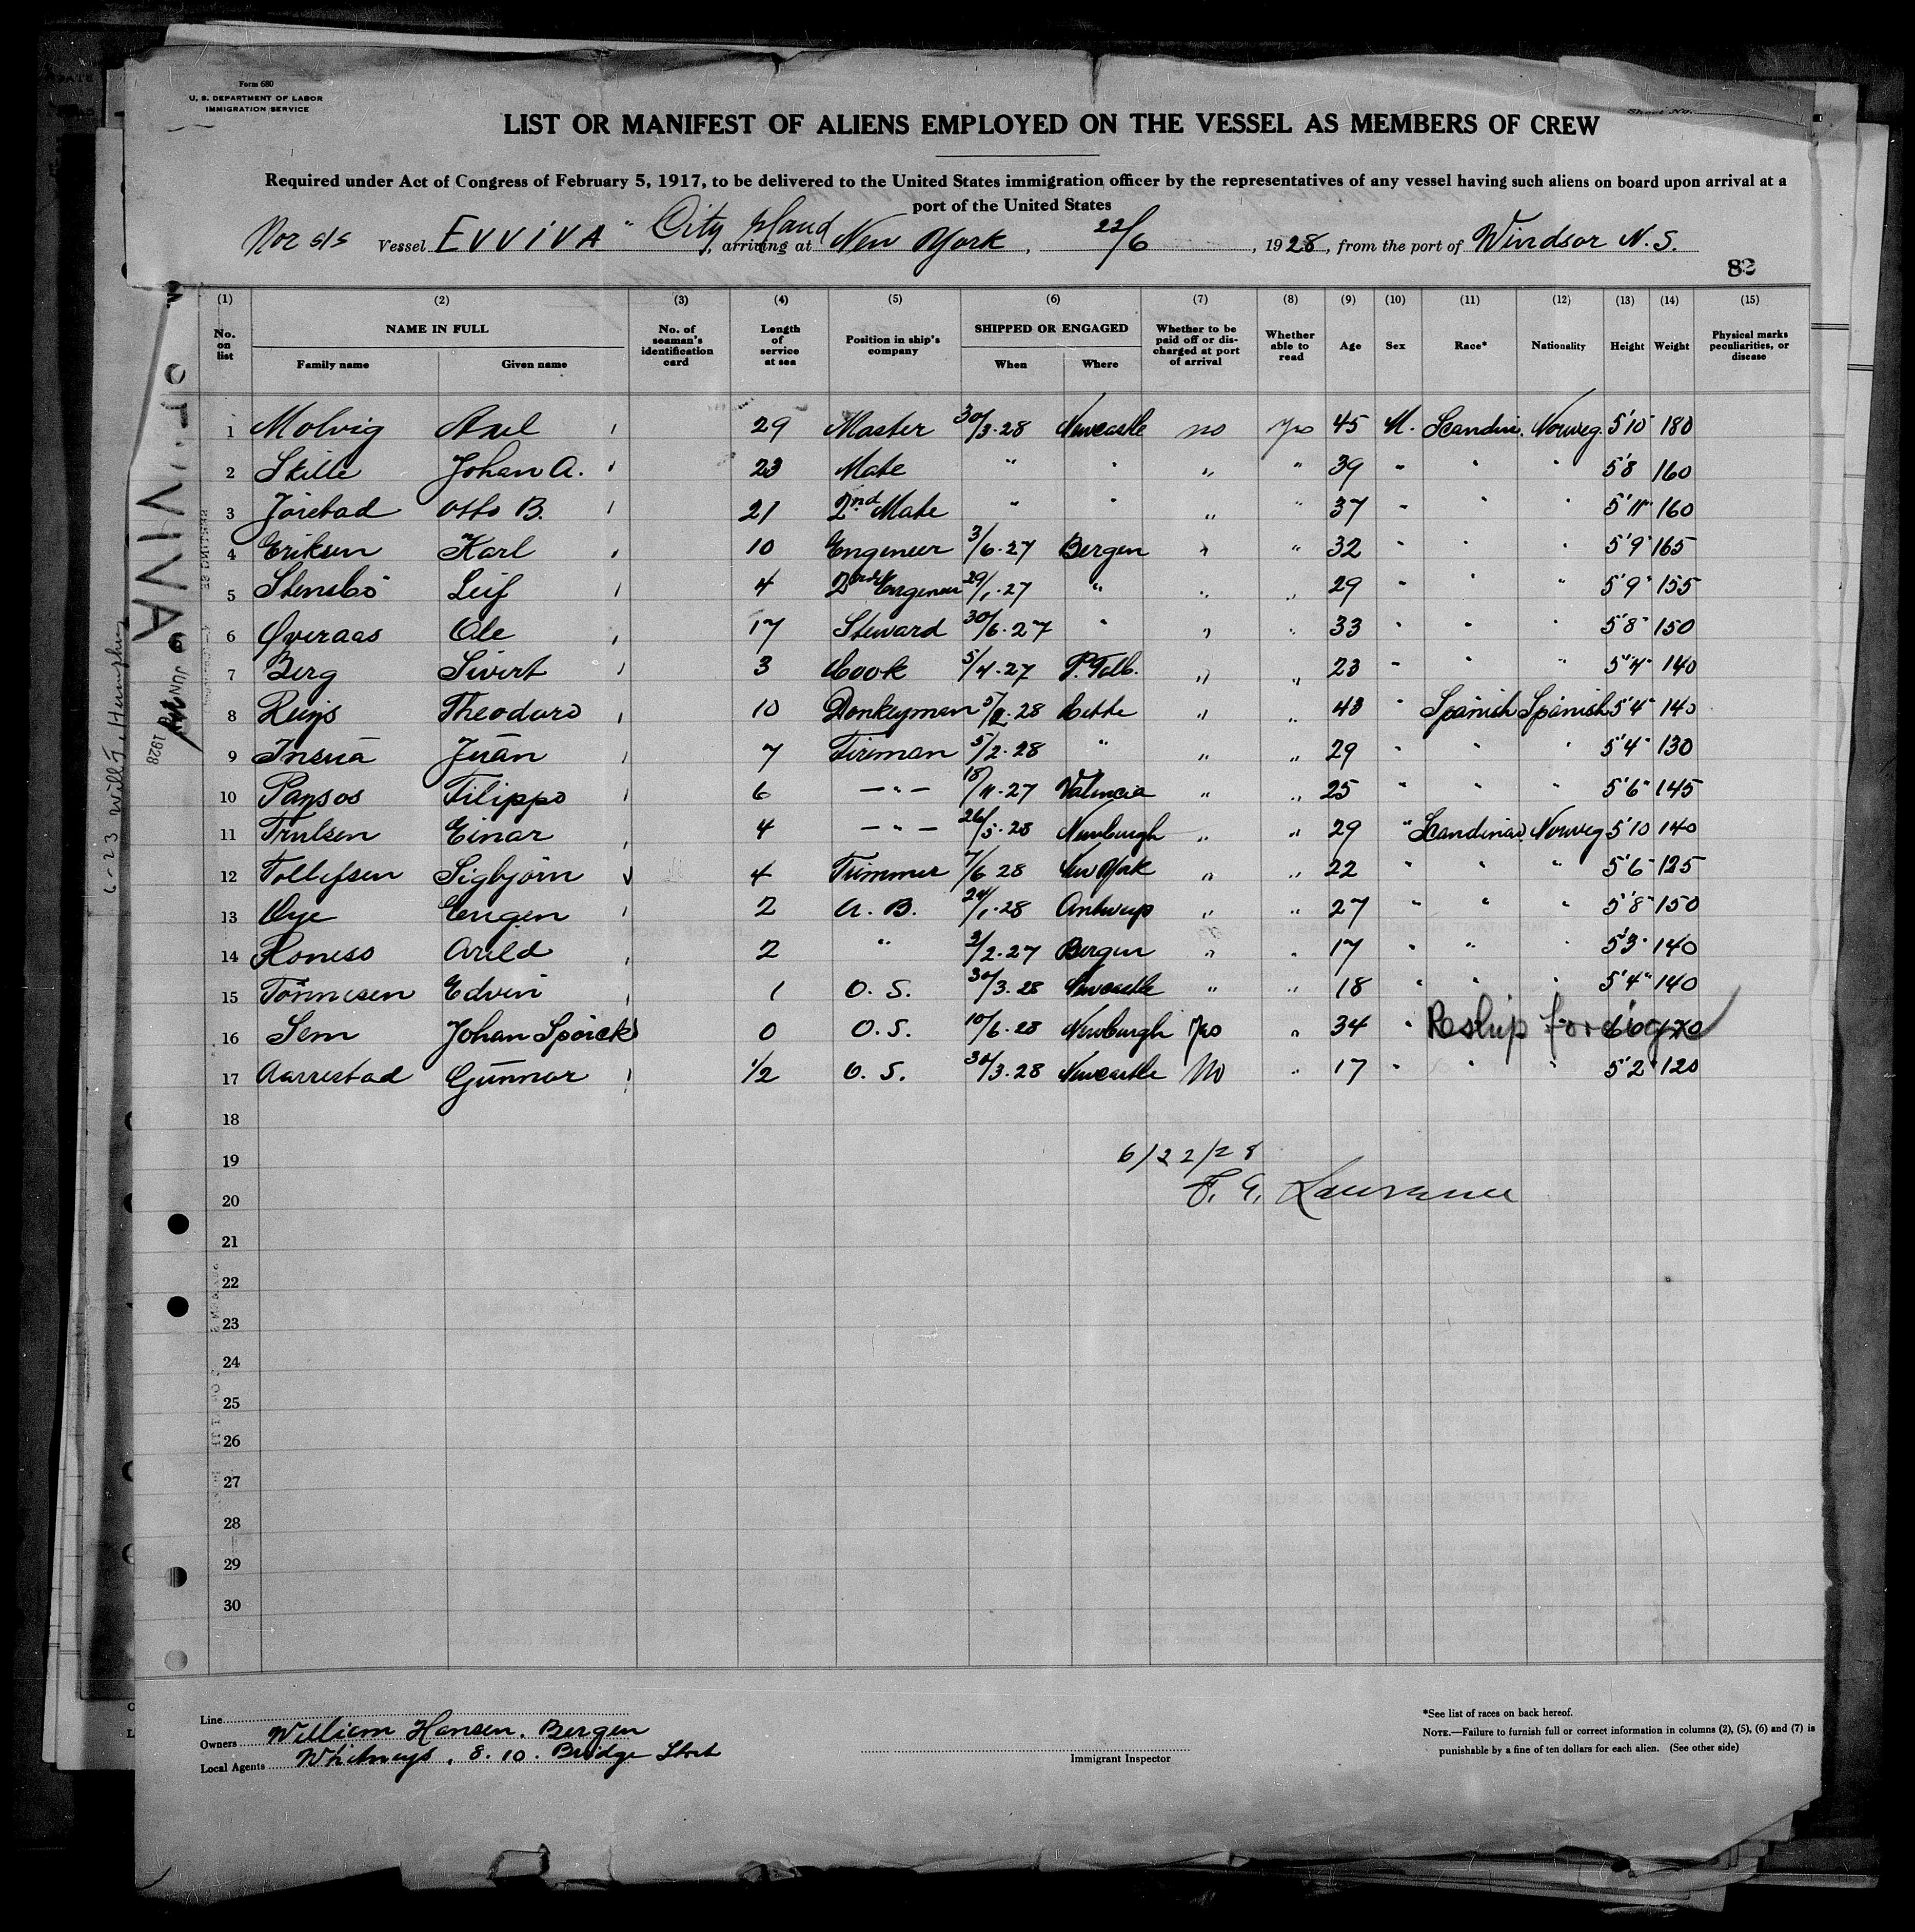 Form 680
U. S. DEPARTMENT OF LABOR
IMMIGRATION SERVICE
Sheet No.
LIST OR MANIFEST OF ALIENS EMPLOYED ON THE VESSEL AS MEMBERS OF CREW
Required under Act of Congress of February 5, 1917, to be delivered to the United States immigration officer by the representatives of any vessel having such aliens on board upon arrival at a
port of the United States
Nor s/s Vessel EVVIVA City Island, arriving at New York, 22/6, 1928, from the port of Windsor N.S.
82
(1) (2) (3) (4) (5) (6) (7) (8) (9) (10) (11) (12) (13) (14) (15)
No. on list NAME IN FULL Family name Given name No. of seaman's identification card Length of service at sea Position in ship's company SHIPPED OR ENGAGED When Where Whether to be paid off or discharged at port of arrival Whether able to read Age Sex Race* Nationality Height Weight Physical marks peculiarities, or disease
1 Molvig Axel 29 Master 30/3.28 Newcastle no yes 45 M. Scandin. Norweg. 5'10 180
2 Skille Johan A. 23 Mate " " " " 39 " " " 5'8 160
3 Jöretad Otto B. 21 2nd Mate " " " " 37 " " " 5'11" 160
4 Eriksen Karl 10 Engeneer 3/6.27 Bergen " " 32 " " " 5'9" 165
5 Stensbö Leif 4 2nd Engeneer 29/1.27 " " " 29 " " " 5'9" 155
6 Øveraas Ole 17 Steward 30/6.27 " " " 33 " " " 5'8" 150
7 Berg Sivert 3 Cook 5/4.27 P. Talb. " " 23 " " " 5'4" 140
8 Theodoro 10 Donkeyman 5/2.28 Cette " " 43 " Spanish Spanish 5'4" 140
9 Insua Juan 7 Fireman 5/2.28 " " " 29 " " " 5'4" 130
10 Pansos Filippo 6 — " — 18/11.27 Valencia " " 25 " " " 5'6" 145
11 Trulsen Einar 4 — " — 26/5.28 Newburgh " " 29 " Scandinav. Norweg 5'10 140
12 Tollefsen Sigbjörn 4 Trimmer 7/6 28 New York " " 22 " " " 5'6" 125
13 Øye Eugen 2 A. B. 24/1.28 Antwerp " " 27 " " " 5'8" 150
14 Roness Arild 2 " 3/2.27 Bergen " " 17 " " " 5'3" 140
15 Tönnesen Edvin 1 O. S. 30/3.28 Newcastle " " 18 " " " 5'4" 140
16 Sem Johan Spörck 0 O. S. 10/6.28 Newburgh yes " 34 " Reship foreign
17 Aarrestad Gunnar 1/2 O. S. 30/3.28 Newcastle No " 17 " " " 5'2" 120
18
19
20
21
22
23
24
25
26
27
28
29
30
6/22/28
F. G. Lawrence
Line
Owners William Hansen. Bergen
Local Agents Whitneys, 8. 10. Bridge Street
Immigrant Inspector
*See list of races on back hereof.
NOTE.—Failure to furnish full or correct information in columns (2), (5), (6) and (7) is
punishable by a fine of ten dollars for each alien. (See other side)
VIVA
JUN 1928